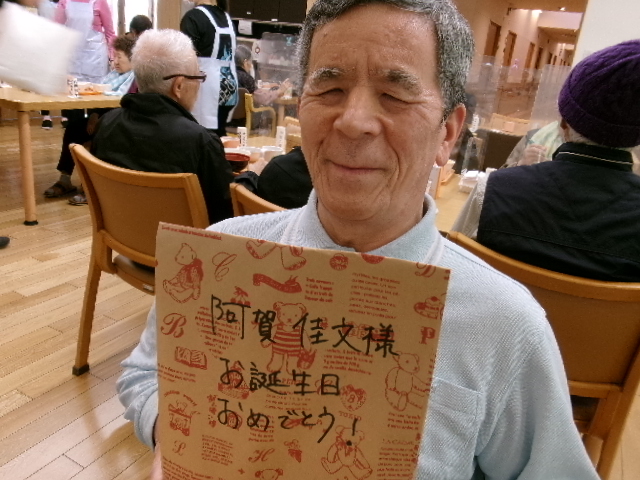 阿賀 佳文様
お誕生日
おめでとう!